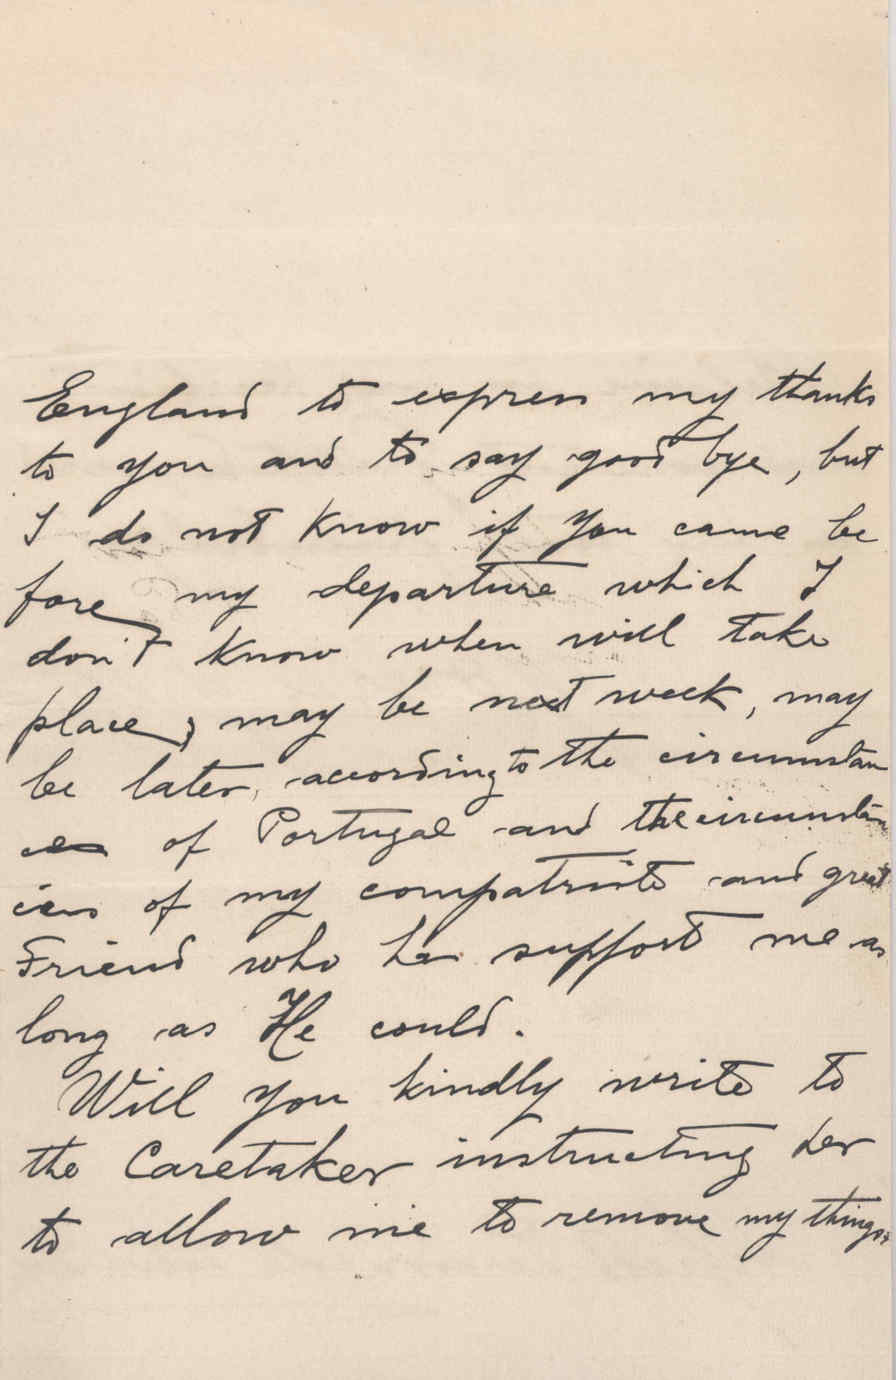 England to express my thanks
to you and to say good bye, but
I do not know if you came be
fore my departure which I
don't know when will take
place, may be next week, may
be later, according to the circumstan
ces of Portugal and the circumstan
ces of my compatriote and great
Friend who has support me as
long as He could.
Will you kindly write to
the Caretaker instructing her
to allow me to remove my things